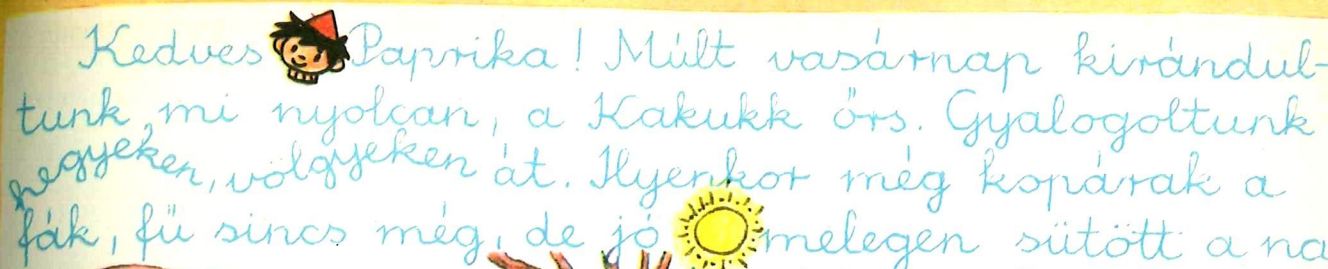 Kedves Paprika! Múlt vasárnap kirándul-
tunk, mi nyolcan, a Kakukk őrs. Gyalogoltunk
hegyeken, völgyeken át. Ilyenkor még kopárak a
fák, fű sincs még, de jó melegen sütött a na